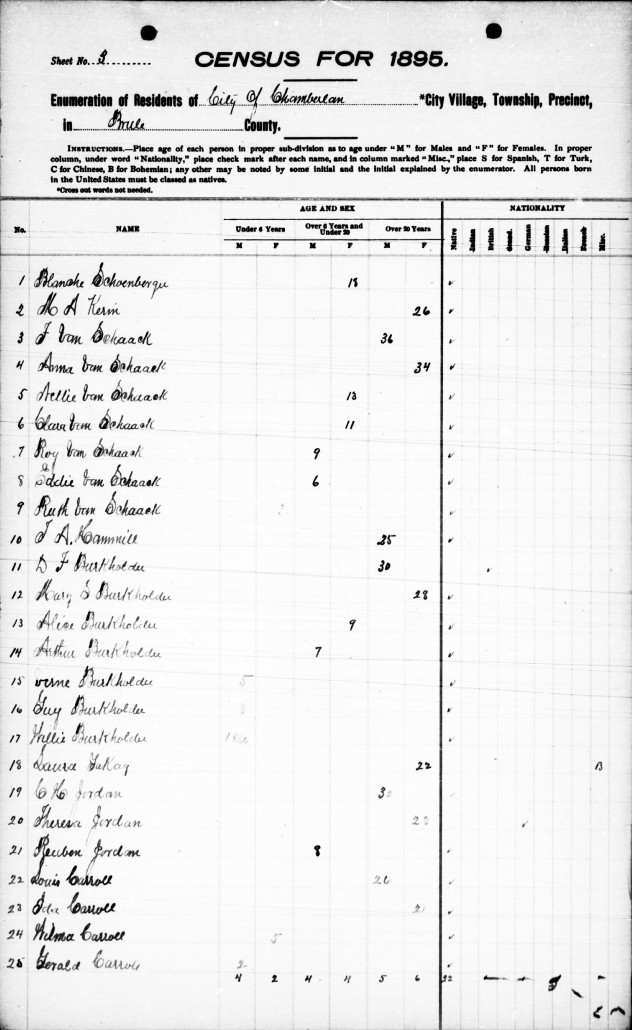 Sheet No. 3
CENSUS FOR 1895.
Enumeration of Residents of City of Chamberlan *City Village, Township, Precinct,
in Brule County.
INSTRUCTIONS.—Place age of each person in proper sub-division as to age under "M" for Males and "F" for Females. In proper
column, under word "Nationality," place check mark after each name, and in column marked "Misc.," place S for Spanish, T for Turk,
C for Chinese, B for Bohemian; any other may be noted by some initial and the initial explained by the enumerator. All persons born
in the United States must be classed as natives.
*Cross out words not needed.
AGE AND SEX NATIONALITY
No. NAME Under 6 Years Over 6 Years and Under 20 Over 20 Years Native Indian British Scand. German Russian Italian French Misc.
M F M F M F
1 Blanche Schoenberger 18 ✓
2 M A Kerin 26 ✓
3 F Van Schaack 36 ✓
4 Anna Van Schaack 34 ✓
5 Nellie Van Schaack 13 ✓
6 Clara Van Schaack 11 ✓
7 Roy Van Schaack 9 ✓
8 Eddie Van Schaack 6 ✓
9 Ruth Van Schaack ✓
10 A. 25 ✓
11 D F Burkholder 30 ✓
12 Mary Burkholder 28 ✓
13 Alice Burkholder 9 ✓
14 Arthur Burkholder 7 ✓
15 Verne Burkholder 5 ✓
16 Guy Burkholder 3 ✓
17 Willie Burkholder ✓
18 Laura 22 B
19 C H Jordan 30 ✓
20 Theresa Jordan 28 ✓
21 Reuben Jordan 8 ✓
22 Louis Carroll 26 ✓
23 Ida Carroll 21 ✓
24 Wilma Carroll 5 ✓
25 Gerald Carroll 2 ✓
4 2 4 4 5 6 22